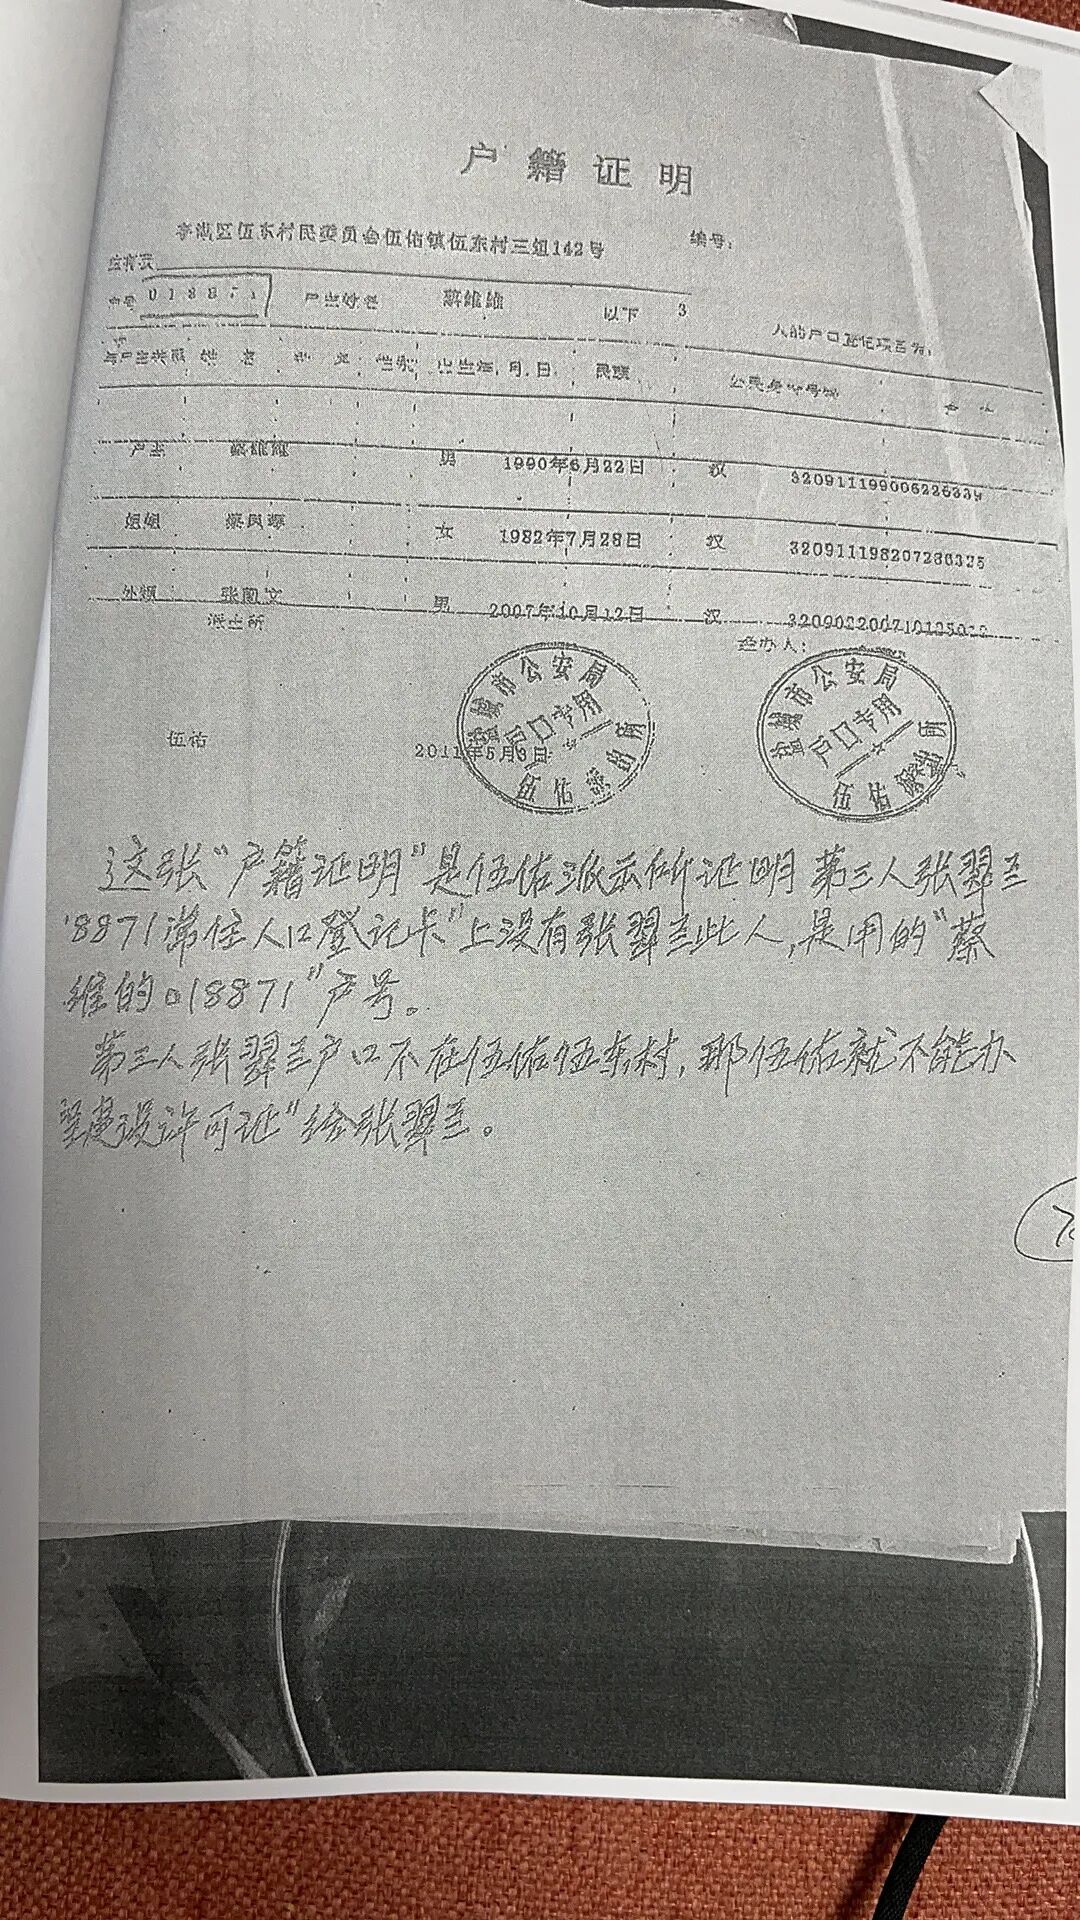 户籍证明
亭湖区伍东村民委员会伍佑镇伍东村三组142号 编号：
018871 户主姓名 蔡维维 以下 3 人的户口登记项目为：
性别 出生年.月.日 民族 公民身份号码
户主 蔡维维 男 1990年6月22日 汉
姐姐 蔡凤 女 1982年7月28日 汉
外甥 张 文 男 2007年10月12日 汉
派出所 经办人：
伍佑 2011年5月
盐城市公安局 户口专用 伍佑派出所
盐城市公安局 户口专用 伍佑派出所
这张“户籍证明”是伍佑派出所证明第三人张翠兰
8871常住人口登记卡”上没有张翠兰此人，是用的“蔡
维的018871”户号。
第三人张翠兰户口不在伍佑伍东村，那伍佑就不能办
建设许可证”给张翠兰。